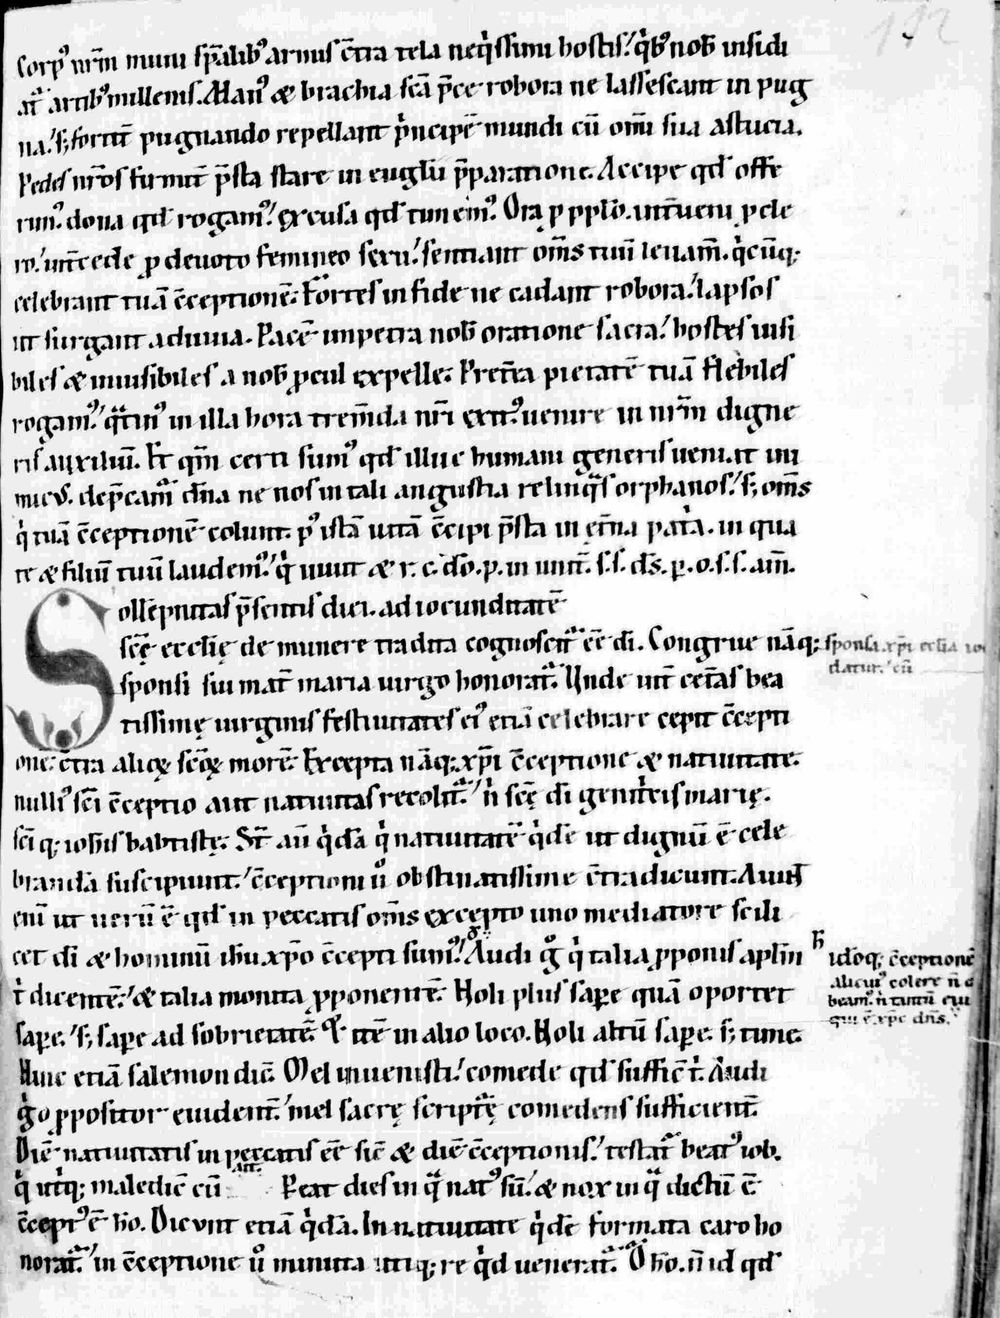 192
Corp᷒ nr̄m muni sp̄alib᷒ armis ēt͛ra tela neq͛ssimi hostis! q͛b᷒ nob̄ insidi
at͛ artib᷒ millenis. Man᷒ & brachia sc̄a p̄ce robora ne lassescant in pug
na! s; fortit̄ pugnando repellant p͛ncipē mundi cū om̄i sua astucia.
Pedes nr̄os firmit̄ p̄sta stare in eugl̄ii p̄paratione. Accipe qd̄ offe
rim᷒. dona qd̄ rogam᷒! excusa qd̄ tim em᷒. Ora ꝑ ppl̄o. int̄ueni ꝑ cle
ro! int̄cede ꝑ devoto femineo sexu! sentiant om̄s tuū leuam̄. q͛cūq;
celebrant tuā c̄ceptionē. Fortes in fide ne cadant robora! lapsos
ut surgant adiuua. Pacē impetra nob̄ oratione sacra! hostes uisi
biles & inuisibiles a nob̄ ꝓcul expelle. Pret̄ea pietatē tuā flebiles
rogam᷒! q͛tin᷒ in illa hora trem̄da nr̄i exit᷒ uenire in nr̄m digne
ris auxiliū. Et qm̄ certi sum᷒ qd̄ illuc humani generis ueniet ini
mic᷒. dep̄cam͛ dn̄a ne nos in tali angustia relinq͛s orphanos! s; om̄s
q͛ tuā c̄ceptionē colunt. p᷒ istā uitā c̄cipi p̄sta in et̄na pat͛a. in qua
te & filiū tuū laudem᷒! q͛ uiuit & r. c. dō. p. in unit̄. s. s. ds̄. p. o. s. s. am̄.
Sollēpnitas p̄sentis diei. ad iocunditatē
scē ecclīę de munere tradita cognoscit͛ eē dī. Congrue nāq;
sponsi sui mat̄ maria uirgo honorat͛. Unde int̄ cet̄as bea
tissimę uirginis festiuitates ei᷒ etiā celebrare cepit c̄cepti
onē. ēt͛ra alioꝝ scōꝝ morē. Excepta nāq; xp̄i c̄ceptione & natiuitate.
nulli᷒ sc̄i c̄ceptio aut natiuitas recolit͛! n͛ scę̄ dī genit͛cis marię.
sc̄i q; ioh̄is baptistę. St̄ aū q͛dā q͛ natiuitatē q͛dē ut dignū ē cele
brandā suscipiunt! c̄ceptioni ū obstinatissime ēt͛radicunt. Aiunt
enī ut uerū ē qd̄ in peccatis om̄s excepto uno mediatore scili
cet dī & hominū ih̄u xp̄o c̄cepti sum᷒! Audi g͛ q͛ talia ꝓponis apl̄m
t͛ dicentē! & talia monita ꝓponentē. Noli plus sapere quā oportet
sape! s; sape ad sobrietatē. Et itē in alio loco. Noli altū sape. s; time.
Hinc etiā salemon dic̄. Mel inuenisti! comede qd̄ sufficit t͛. Audi
g͛o ꝓpositor euident̄! mel sacrę scriptę̄ comedens sufficient̄.
Diē natiuitatis in peccatis eē sic̄ & diē c̄ceptionis! testat͛ beat᷒ iob.
q͛ ut͛q; maledic̄ cū ait. Pereat dies in q͛ nat᷒ sū! & nox in q͛ dictū ē
c̄cept᷒ ē hō. Dicunt etiā q͛dā. In natiuitate q͛dē formata caro ho
norat͛! in c̄ceptione ū minuta utiq; re q͛d uenerat͛. O hō. n̄ id qd̄
sponsa xp̄i ecl̄ia
datur! cū
idōq; c̄ceptionē
alicui᷒ colere n̄ d
beam᷒ n͛ tantū eiu
qui ē xp̄c dn̄s.